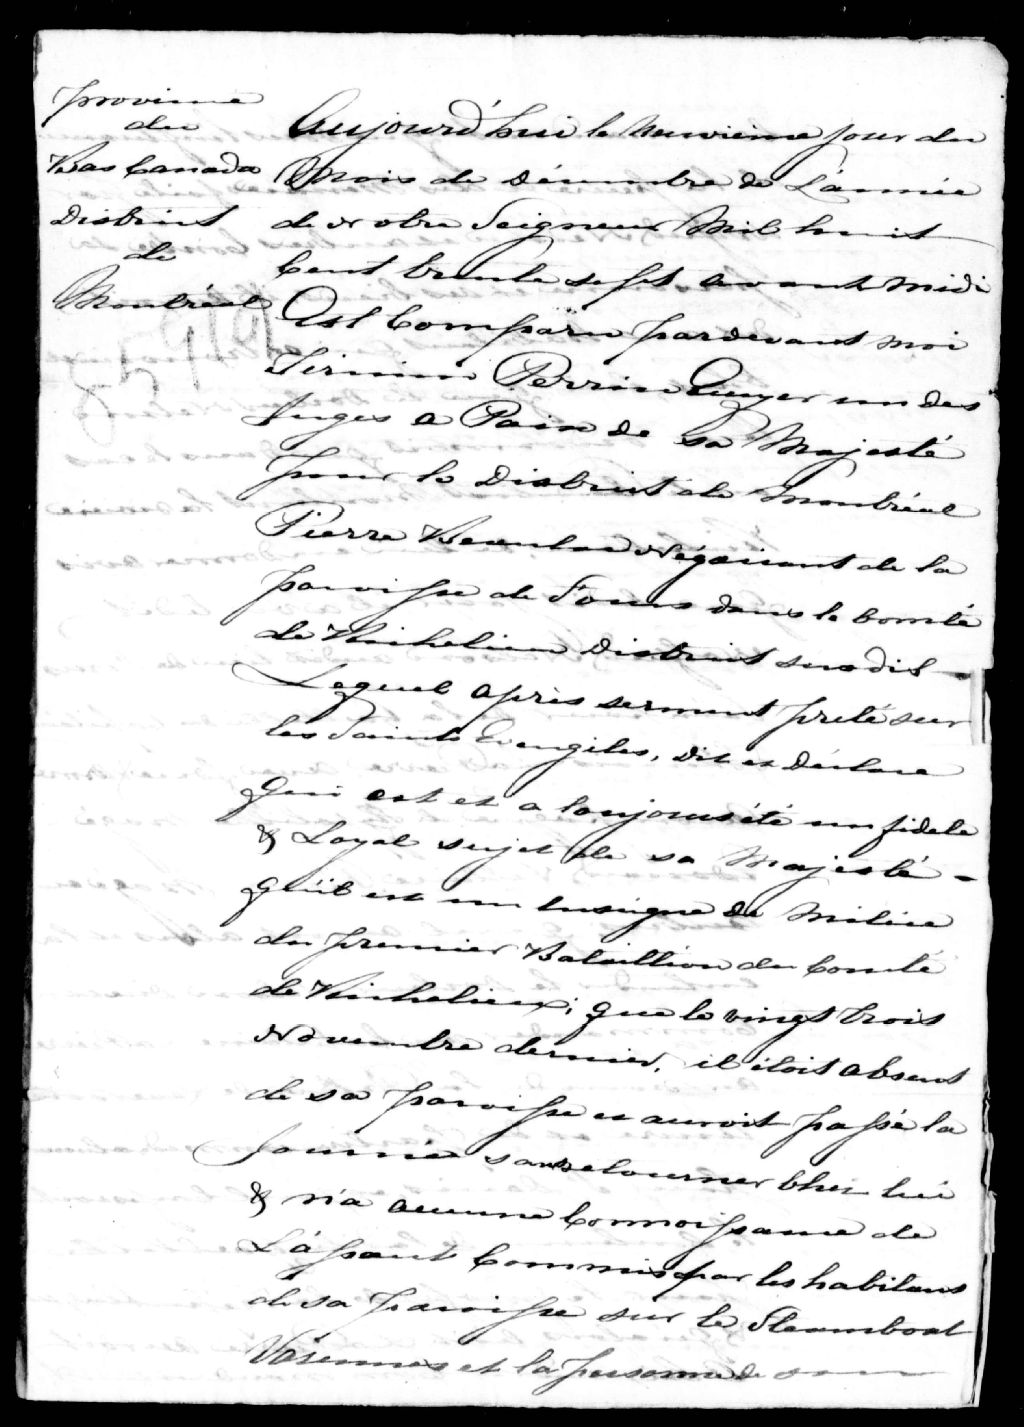 Province
du
Bas Canada
District
de
Montréal
Aujourd'hui le neuvieme jour du
Mois de Décembre de L'année
de Notre Seigneur Mil huit
Cent trente sept, avant midi
Est Comparu pardevant moi
Perrin Ecuyer un des
Juges a Paix de sa Majesté
pour le District de Montréal
Pierre Négociant de la
paroisse de St Ours dans le Comté
de Richelieu District susdit
Lequel après serment preté sur
les Saints Evengiles, dit et déclare
qui est et a toujours été un fidele
& Loyal sujet de sa Majesté -
qu'il est un Ensigne de Milice
du premier Bataillion du Comté
de Richelieu; que le vingt trois
Novembre dernier, il étoit absent
de sa paroisse et auroit passé la
Journée sans retourner Chez lui
& n'a aucune Connoissance de
L'assaut Commis par les habitans
de sa Paroisse sur le Steamboat
Varennes et la personne de